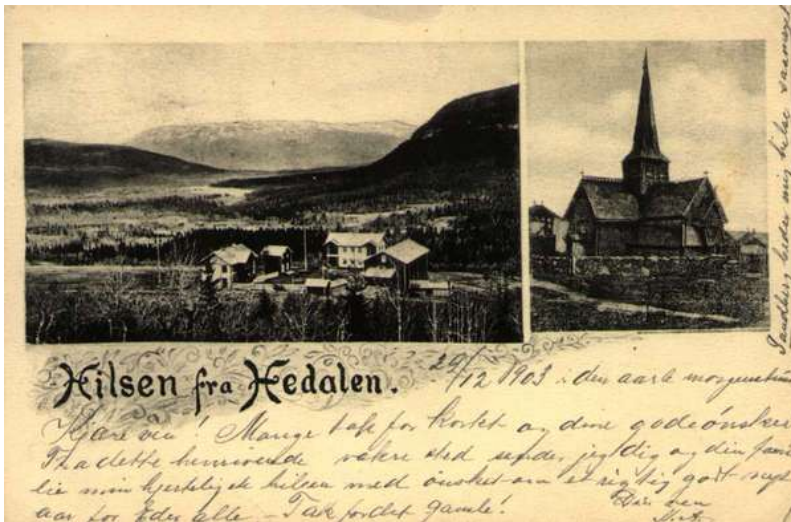 Hilsen fra Hedalen.
29/12 1903 i den aarle morgenstund
Kjære ven! Mange tak for kortet og dine gode ønsker
Fra dette henrivende vakre sted sender jeg dig og din fami
lie min hjerteligste hilsen med ønsket om et rigtig godt nyt
aar for Eder alle. - Tak for det gamle!
Din ven
Sandberg beder mig hilse